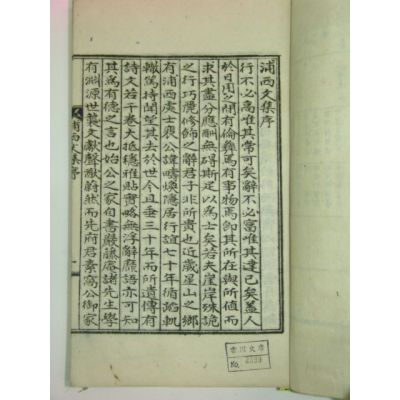 浦西文集序
行不必高唯其常可矣辭不必富唯其達已矣蓋人
於日用之間有倫彝焉有事物焉卽其所在與所值而
求其盡分應酬無碍斯足以爲士矣若夫崖岸殊詭
之行巧麗修飾之辭君子非所貴也近歲星山之鄕
有浦西處士裵公諱疇煥隱居行誼七十年循蹈軌
轍篤持聞望其去於世今且垂三十年而所遺傳有
詩文若干卷大抵穩雅貼實略無浮辭靡語亦可知
其爲有德之言也始公之家旬書巖藤庵諸先生學
有淵源世襲文獻聲猷蔚然而先府君素窩公御家
浦西文集序
一
No. 4593